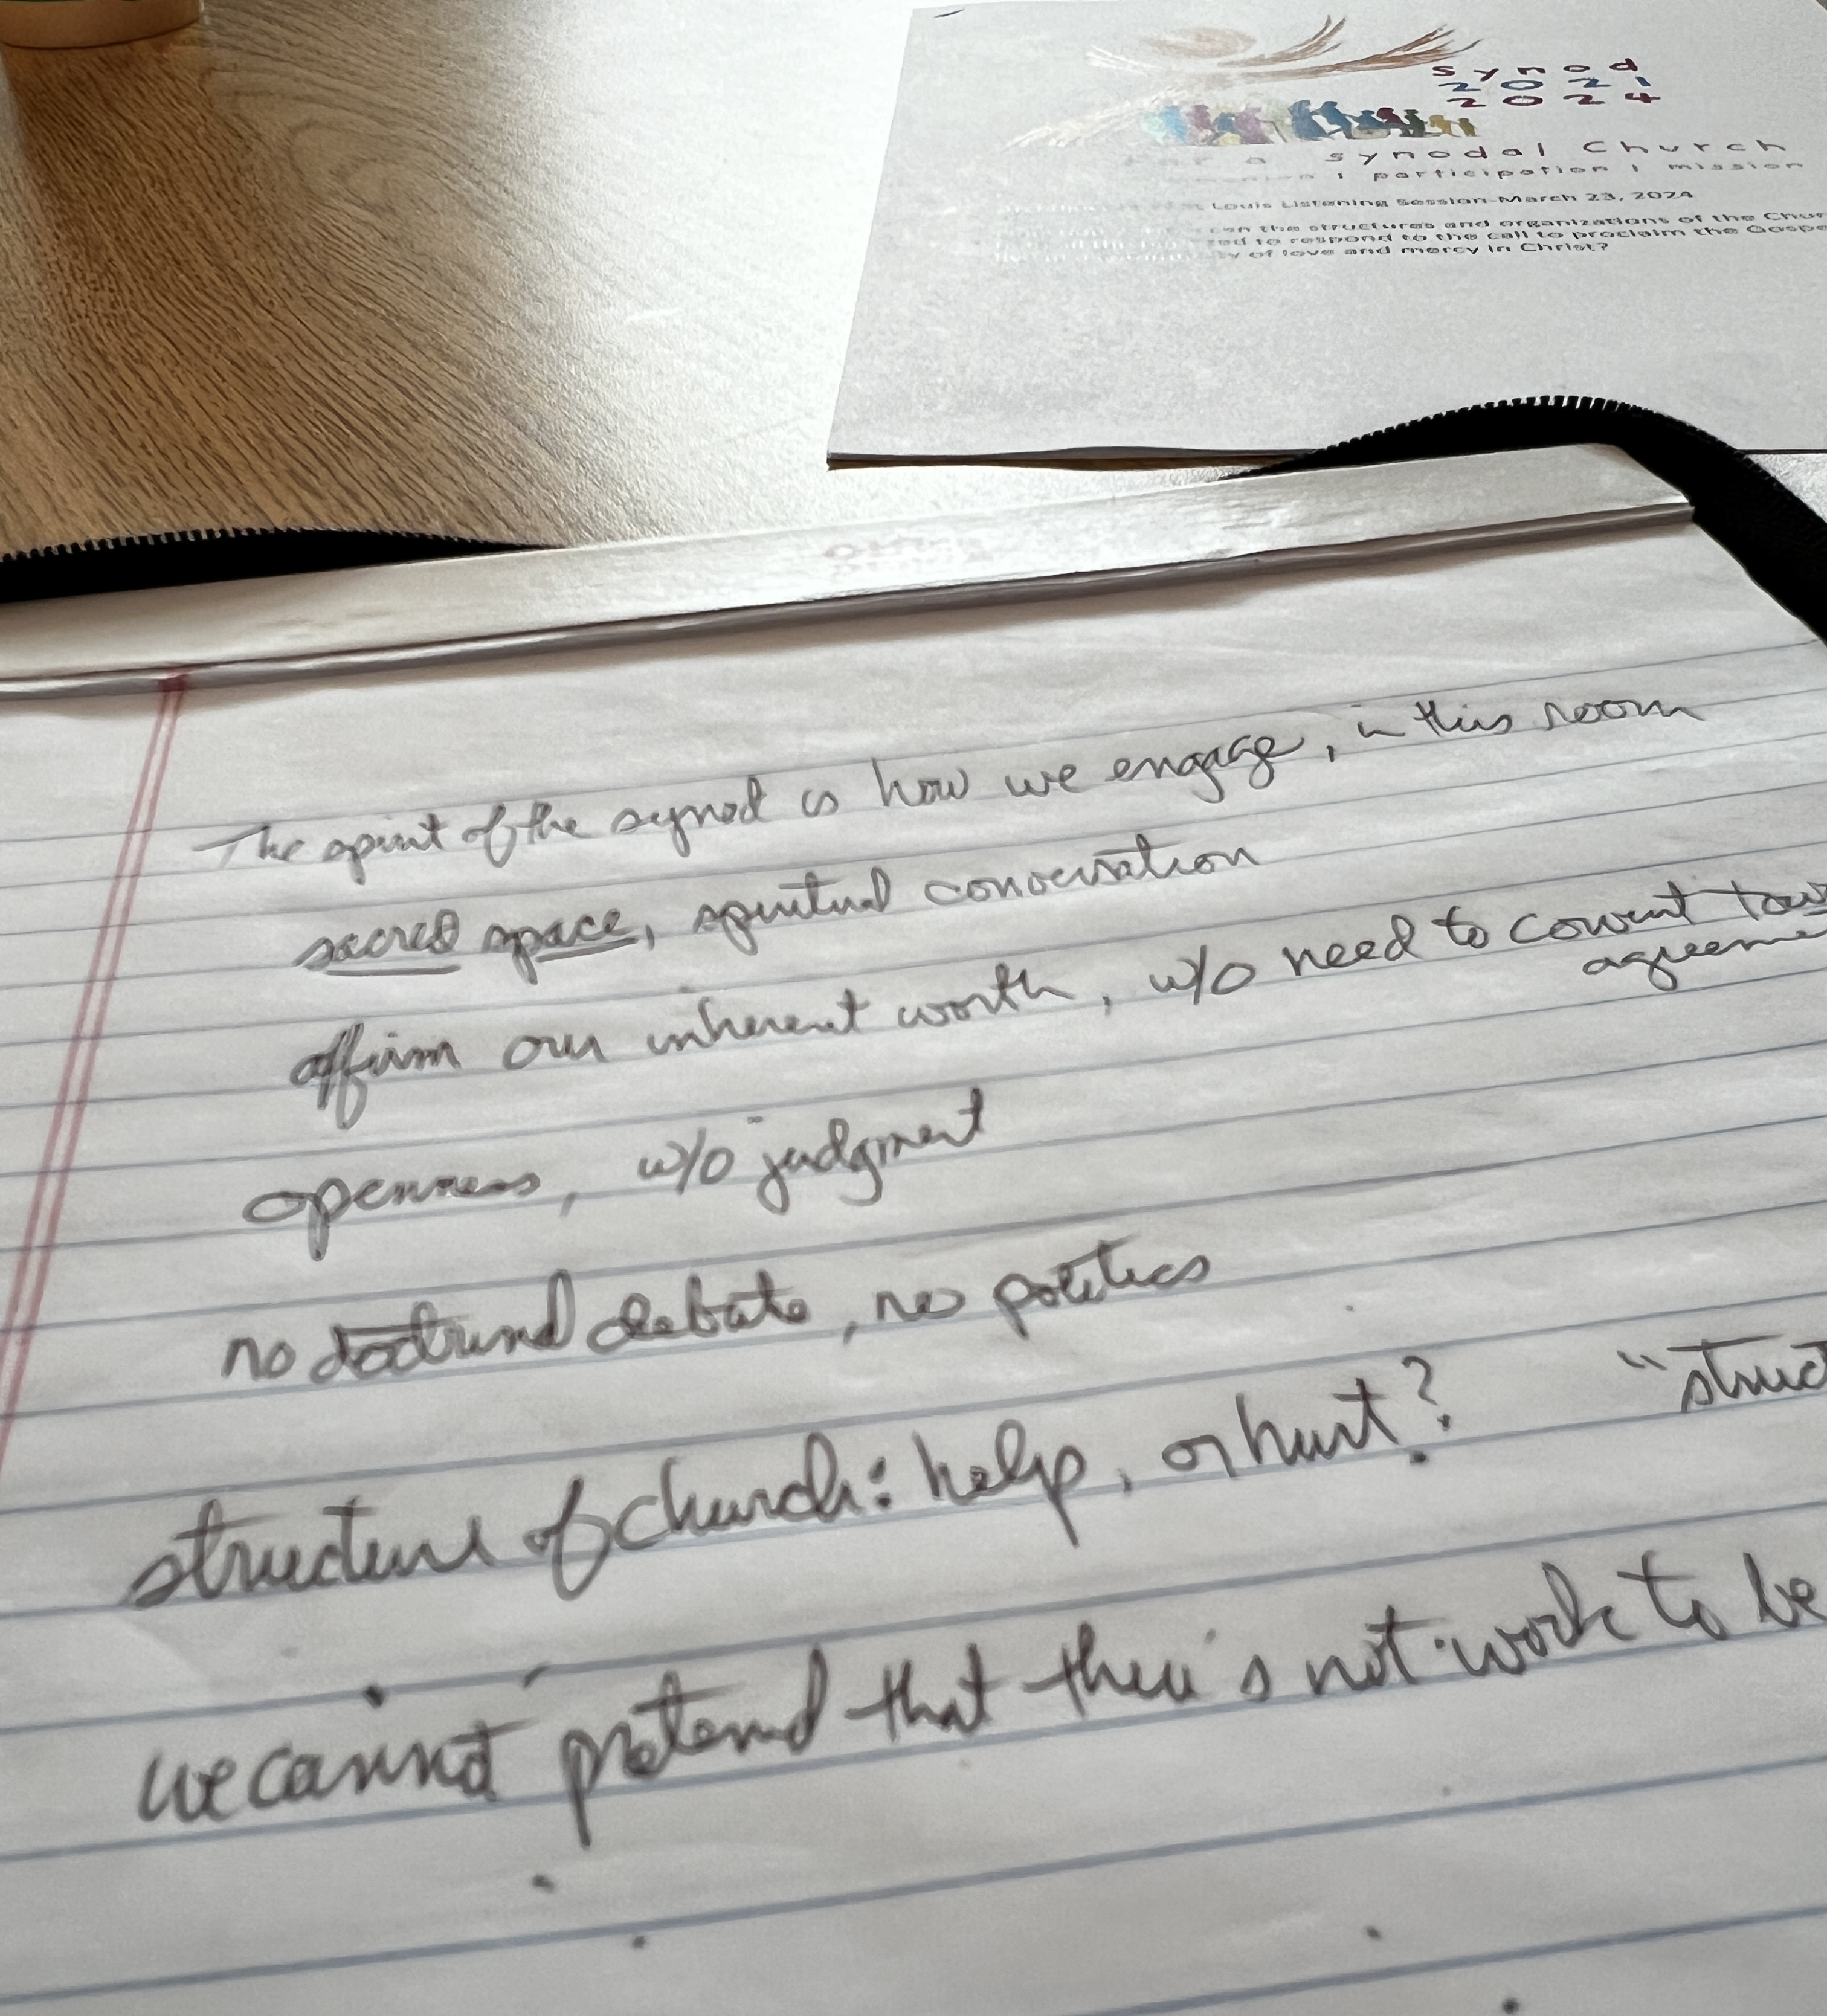 synod
2021
2024
a synodal Church
participation | mission
Louis Listening Session-March 23, 2024
can the structures and organizations of the Chur
to respond to the call to proclaim the Gospe
of love and mercy in Christ?
The spirit of the synod is how we engage, in this room
sacred space, spiritual conversation
affirm our inherent worth, w/o need to convert
openness, w/o judgment
no doctrinal debate, no politics
structure of church: help, or hurt? "struc
we cannot pretend that there's not work to be